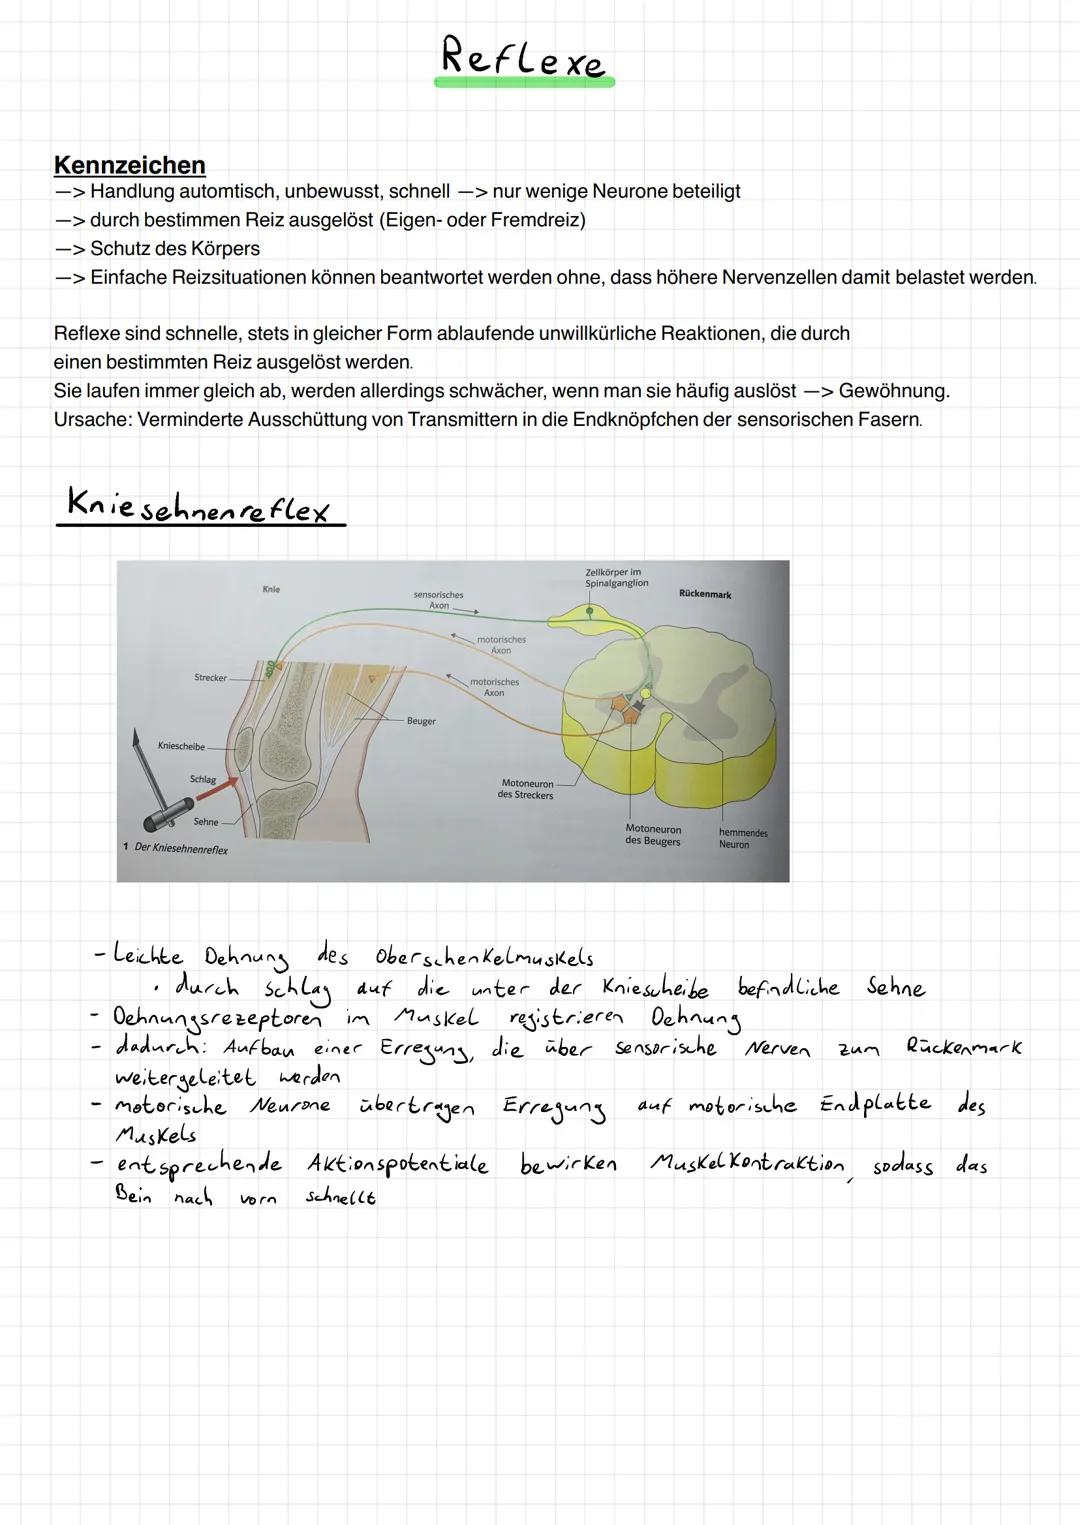 Reflexe
Kennzeichen
—> Handlung automtisch, unbewusst, schnell —> nur wenige Neurone beteiligt
—> durch bestimmen Reiz ausgelöst (Eigen- oder Fremdreiz)
—> Schutz des Körpers
—> Einfache Reizsituationen können beantwortet werden ohne, dass höhere Nervenzellen damit belastet werden.
Reflexe sind schnelle, stets in gleicher Form ablaufende unwillkürliche Reaktionen, die durch
einen bestimmten Reiz ausgelöst werden.
Sie laufen immer gleich ab, werden allerdings schwächer, wenn man sie häufig auslöst —> Gewöhnung.
Ursache: Verminderte Ausschüttung von Transmittern in die Endknöpfchen der sensorischen Fasern.
Kniesehnenreflex
Knie
sensorisches
Axon
Zellkörper im
Spinalganglion
Rückenmark
motorisches
Axon
Strecker
motorisches
Axon
Beuger
Kniescheibe
Schlag
Sehne
Motoneuron
des Streckers
Motoneuron
des Beugers
hemmendes
Neuron
1 Der Kniesehnenreflex
- Leichte Dehnung des Oberschenkelmuskels
• durch Schlag auf die unter der Kniescheibe befindliche Sehne
- Dehnungsrezeptoren im Muskel registrieren Dehnung
- dadurch: Aufbau einer Erregung, die über sensorische Nerven zum Rückenmark
weitergeleitet werden
- motorische Neurone übertragen Erregung auf motorische Endplatte des
Muskels
- entsprechende Aktionspotentiale bewirken Muskelkontraktion, sodass das
Bein nach vorn schnellt